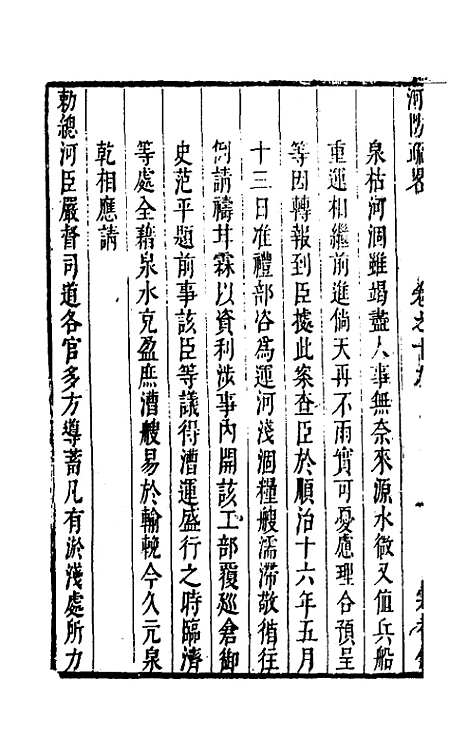 河防疏畧　卷之十九
泉枯河涸雖竭盡人事無奈來源水微又值兵船
重運相繼前進倘天再不雨實可憂慮理合預呈
等因轉報到臣據此案查臣於順治十六年五月
十三日准禮部咨爲運河淺涸糧艘濡滯敬循徃
例請禱甘霖以資利涉事內開該工部覆廵倉御
史范平題前事該臣等議得漕運盛行之時臨濟
等處全藉泉水充盈庶漕艘易於輸輓今久亢泉
乾相應請
勅總河臣嚴督司道各官多方導蓄凡有淤淺處所力